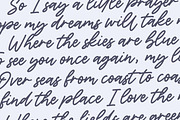 So I say a little prayer
ope my dreams will take m
Where the skies are blue
to see you once again, my l
Over seas from coast to coas
find the place I love the m
Where the fields are green